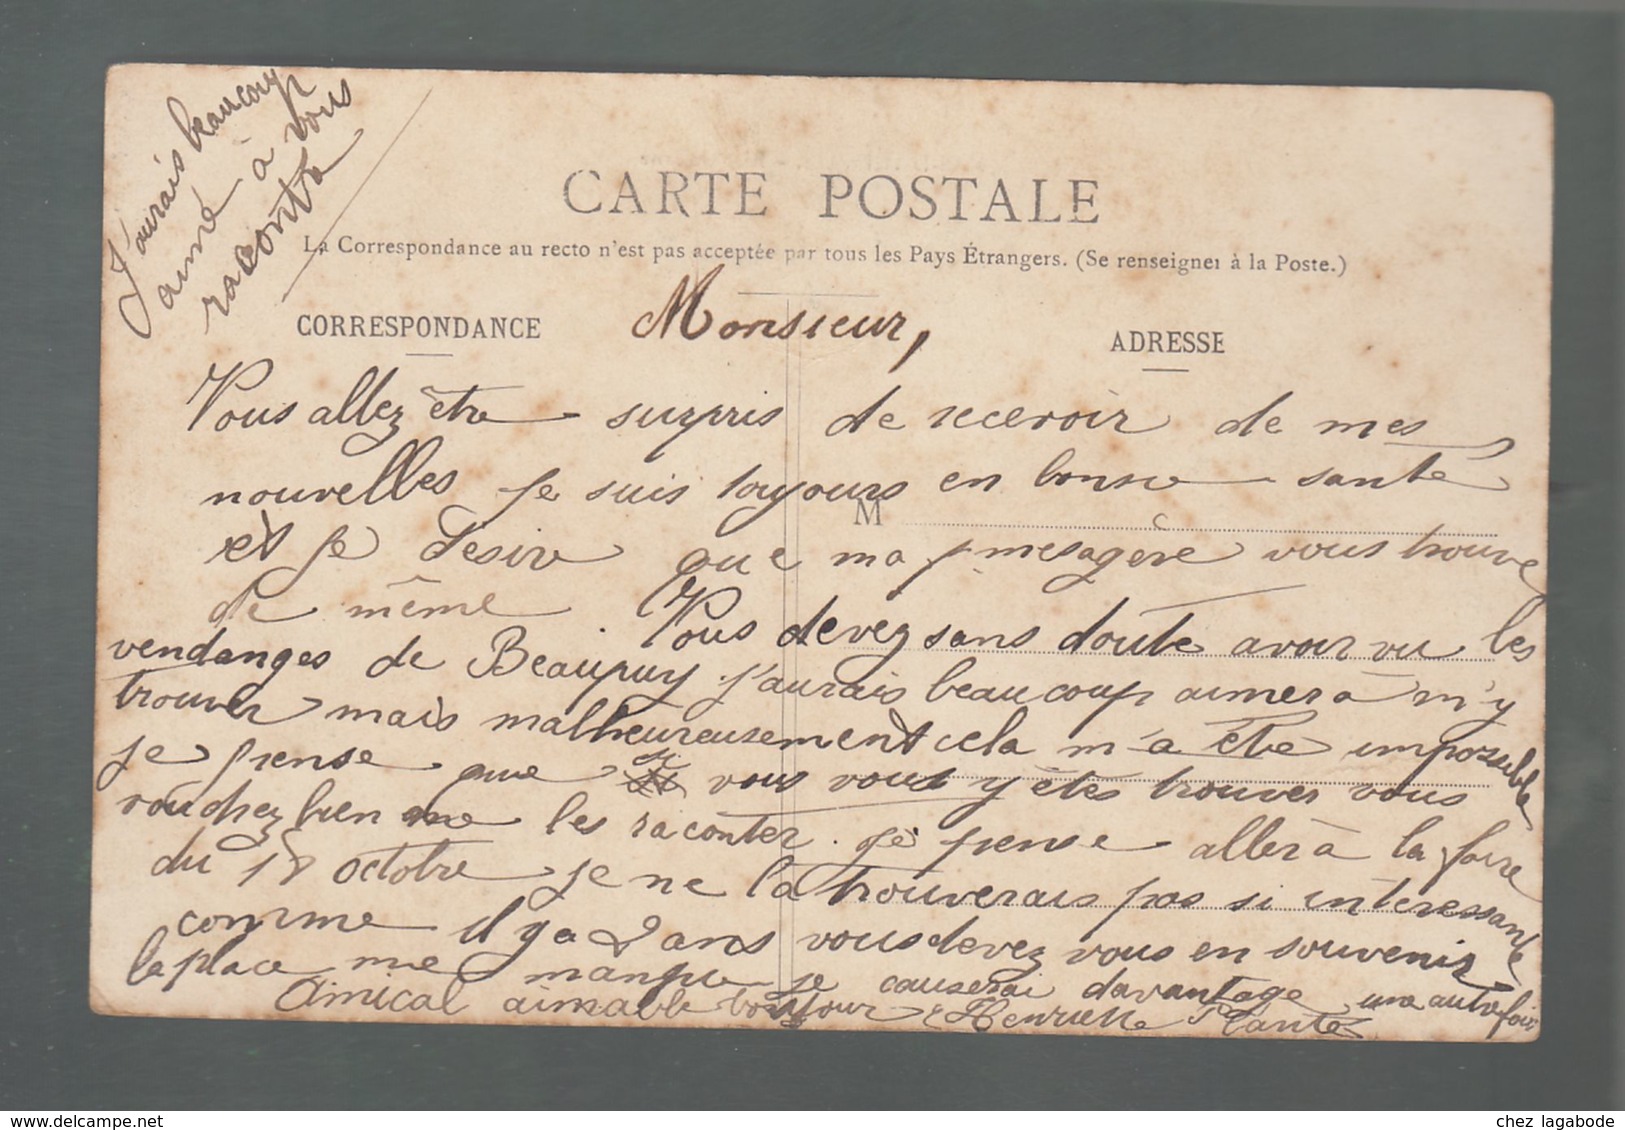 J'aurais beaucoup
aimé à vous
raconter
CARTE POSTALE
La Correspondance au recto n'est pas acceptée par tous les Pays Étrangers. (Se renseigner à la Poste.)
CORRESPONDANCE
Monsieur,
ADRESSE
Vous allez être surpris de recevoir de mes
nouvelles je suis toujours en bonne santé
M
et je désire que ma mesagère vous trouve
de même Vous devez sans doute avoir vu les
vendanges de Beaupuy. j'aurais beaucoup aimer à m'y
trouver mais malheureusement cela m'a été impossible
je pense que si vous vous y êtes trouver vous
voudrez bien me les raconter. je pense aller à la foire
du 18 octobre je ne la trouverais pas si interessante
comme il y a 2 ans vous devez vous en souvenir
la place me manque je causerai davantage une autre fois
Amical aimable bonjour Henriette Plante
chez lagabode